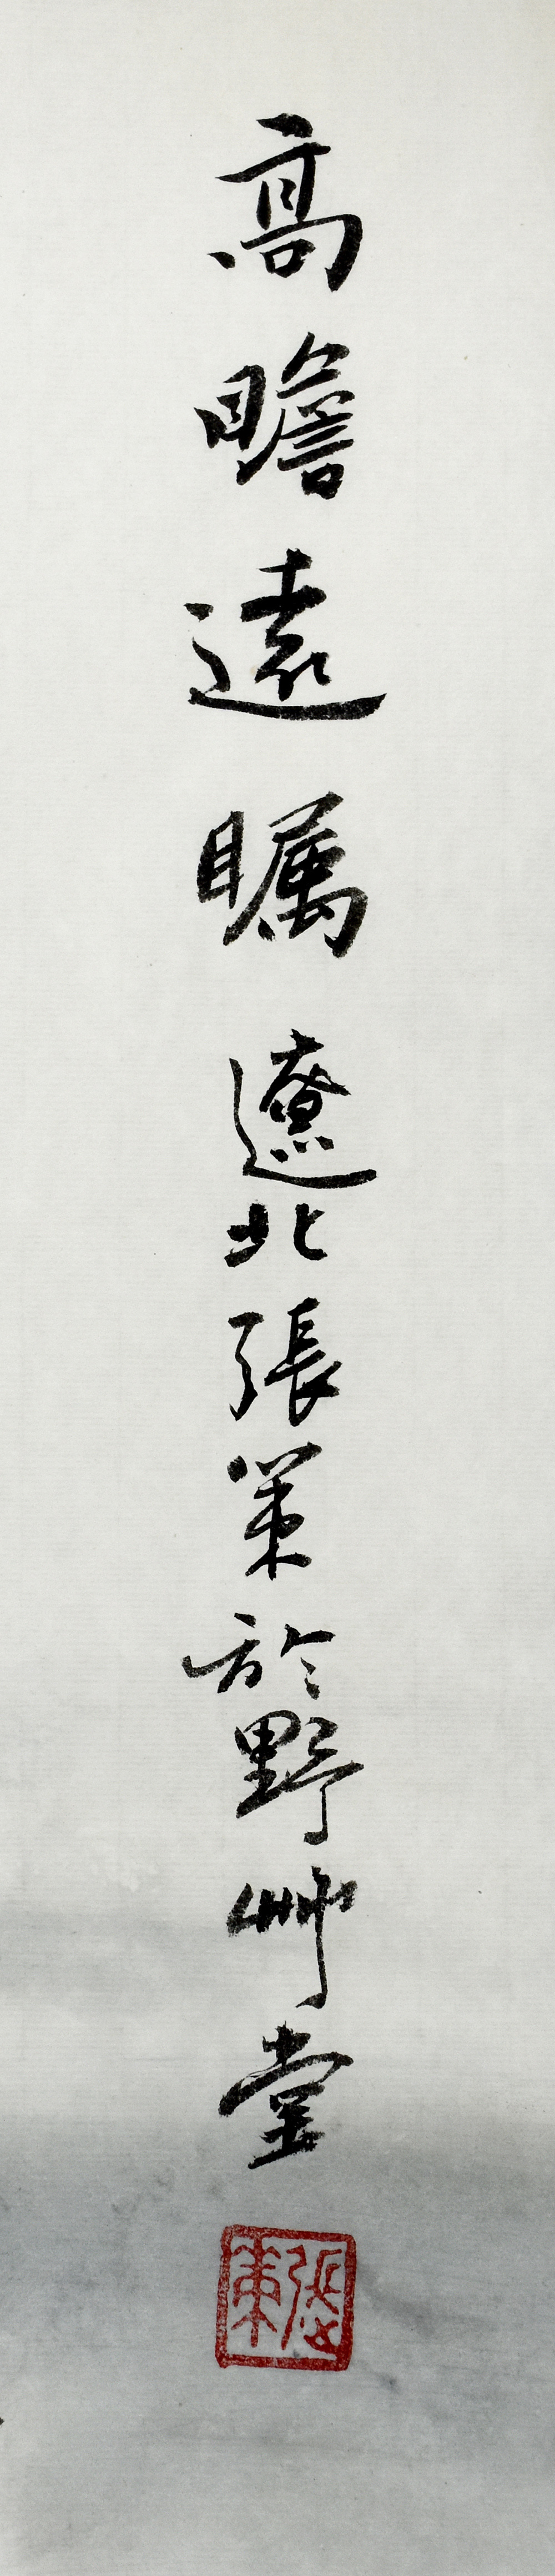 高瞻遠瞩遼北張策於野艸堂
張策